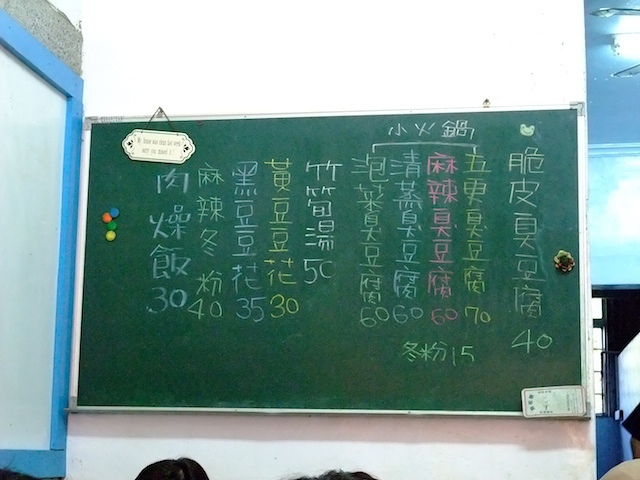 脆皮臭豆腐 40
小火鍋
五更臭豆腐 70
麻辣臭豆腐 60
清蒸臭豆腐 60
泡菜臭豆腐 60
冬粉 15
竹筍湯 50
黃豆豆花 30
黑豆豆花 35
麻辣冬粉 40
肉燥飯 30